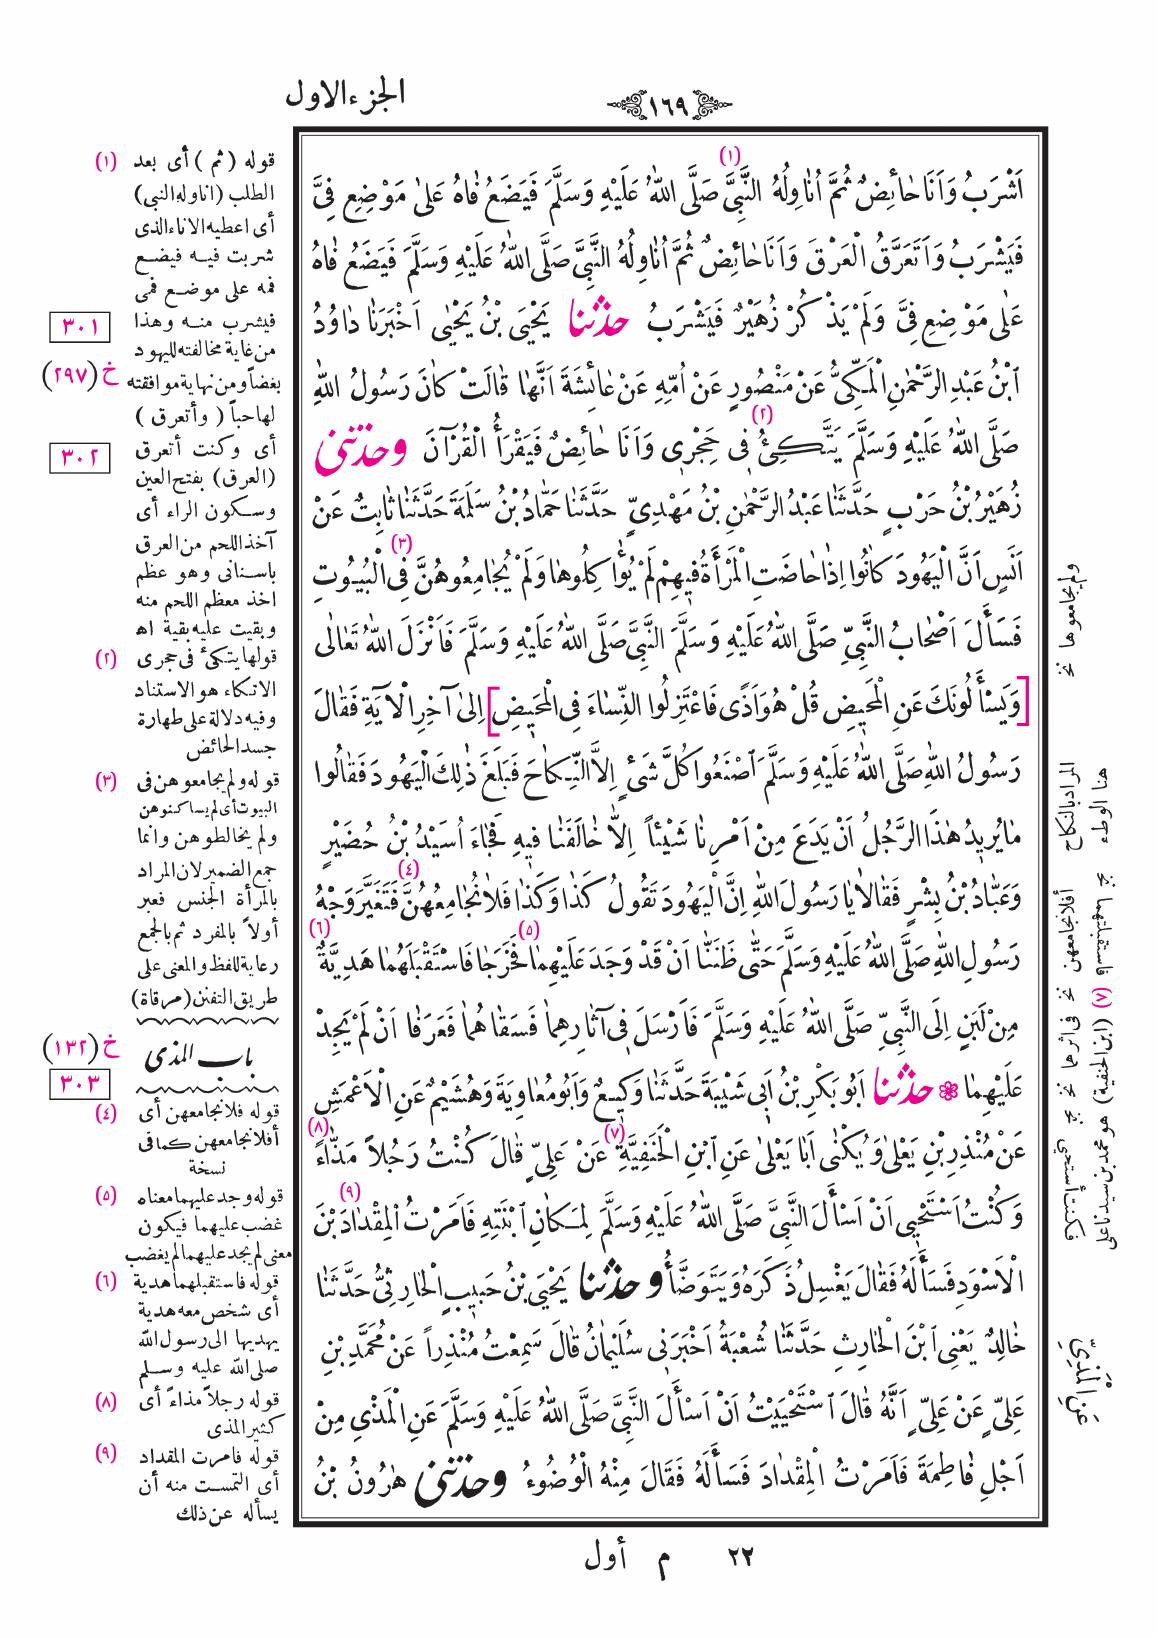 الجزء الاول
١٦٩
(١)
اَشْرَبُ وَاَنَا حَائِضٌ ثُمَّ اُنَاوِلُهُ النَّبِىَّ صَلَّى اللهُ عَلَيْهِ وَسَلَّمَ فَيَضَعُ فَاهُ عَلىٰ مَوْضِعِ فِىَّ
فَيَشْرَبُ وَاَتَعَرَّقُ الْعَرْقَ وَاَنَا حَائِضٌ ثُمَّ اُنَاوِلُهُ النَّبِىَّ صَلَّى اللهُ عَلَيْهِ وَسَلَّمَ فَيَضَعُ فَاهُ
عَلىٰ مَوْضِعِ فِىَّ وَلَمْ يَذْكُرْ زُهَيْرٌ فَيَشْرَبُ حدثنا يَحْيَى بْنُ يَحْيٰى اَخْبَرَنَا دَاوُدُ
ابْنُ عَبْدِ الرَّحْمٰنِ الْمَكِّىُّ عَنْ مَنْصُورٍ عَنْ اُمِّهِ عَنْ عَائِشَةَ اَنَّهَا قَالَتْ كَانَ رَسُولُ اللهِ
(٢)
صَلَّى اللهُ عَلَيْهِ وَسَلَّمَ يَتَّكِئُ فِى حَجْرِى وَاَنَا حَائِضٌ فَيَقْرَأُ الْقُرْآنَ وحدثنى
زُهَيْرُ بْنُ حَرْبٍ حَدَّثَنَا عَبْدُ الرَّحْمٰنِ بْنُ مَهْدِىٍّ حَدَّثَنَا حَمَّادُ بْنُ سَلَمَةَ حَدَّثَنَا ثَابِتٌ عَنْ
(٣)
اَنَسٍ اَنَّ الْيَهُودَ كَانُوا اِذَا حَاضَتِ الْمَرْأَةُ فِيهِمْ لَمْ يُؤَاكِلُوهَا وَلَمْ يُجَامِعُوهُنَّ فِى الْبُيُوتِ
فَسَأَلَ اَصْحَابُ النَّبِىِّ صَلَّى اللهُ عَلَيْهِ وَسَلَّمَ النَّبِىَّ صَلَّى اللهُ عَلَيْهِ وَسَلَّمَ فَاَنْزَلَ اللهُ تَعَالٰى
[وَيَسْأَلُونَكَ عَنِ الْمَحِيضِ قُلْ هُوَ اَذًى فَاعْتَزِلُوا النِّسَاءَ فِى الْمَحِيضِ] اِلىٰ آخِرِ الْآيَةِ فَقَالَ
رَسُولُ اللهِ صَلَّى اللهُ عَلَيْهِ وَسَلَّمَ اصْنَعُوا كُلَّ شَىْءٍ اِلَّا النِّكَاحَ فَبَلَغَ ذٰلِكَ الْيَهُودَ فَقَالُوا
مَا يُرِيدُ هٰذَا الرَّجُلُ اَنْ يَدَعَ مِنْ اَمْرِنَا شَيْئاً اِلَّا خَالَفَنَا فِيهِ فَجَاءَ اُسَيْدُ بْنُ حُضَيْرٍ
(٤)
وَعَبَّادُ بْنُ بِشْرٍ فَقَالَا يَا رَسُولَ اللهِ اِنَّ الْيَهُودَ تَقُولُ كَذَا وَكَذَا فَلَا نُجَامِعُهُنَّ فَتَغَيَّرَ وَجْهُ
(٥) (٦)
رَسُولِ اللهِ صَلَّى اللهُ عَلَيْهِ وَسَلَّمَ حَتّٰى ظَنَنَّا اَنْ قَدْ وَجَدَ عَلَيْهِمَا فَخَرَجَا فَاسْتَقْبَلَهُمَا هَدِيَّةٌ
مِنْ لَبَنٍ اِلَى النَّبِىِّ صَلَّى اللهُ عَلَيْهِ وَسَلَّمَ فَاَرْسَلَ فِى آثَارِهِمَا فَسَقَاهُمَا فَعَرَفَا اَنْ لَمْ يَجِدْ
عَلَيْهِمَا ❀ حدثنا اَبُو بَكْرِ بْنُ اَبِى شَيْبَةَ حَدَّثَنَا وَكِيعٌ وَاَبُو مُعَاوِيَةَ وَهُشَيْمٌ عَنِ الْاَعْمَشِ
(٧) (٨)
عَنْ مُنْذِرِ بْنِ يَعْلىٰ وَيُكْنٰى اَبَا يَعْلىٰ عَنِ ابْنِ الْحَنَفِيَّةِ عَنْ عَلِىٍّ قَالَ كُنْتُ رَجُلاً مَذَّاءً
(٩)
وَكُنْتُ اَسْتَحْيِى اَنْ اَسْأَلَ النَّبِىَّ صَلَّى اللهُ عَلَيْهِ وَسَلَّمَ لِمَكَانِ ابْنَتِهِ فَاَمَرْتُ الْمِقْدَادَ بْنَ
الْاَسْوَدِ فَسَأَلَهُ فَقَالَ يَغْسِلُ ذَكَرَهُ وَيَتَوَضَّأُ وحدثنا يَحْيَى بْنُ حَبِيبٍ الْحَارِثِىُّ حَدَّثَنَا
خَالِدٌ يَعْنِى ابْنَ الْحَارِثِ حَدَّثَنَا شُعْبَةُ اَخْبَرَنِى سُلَيْمَانُ قَالَ سَمِعْتُ مُنْذِراً عَنْ مُحَمَّدِ بْنِ
عَلِىٍّ عَنْ عَلِىٍّ اَنَّهُ قَالَ اسْتَحْيَيْتُ اَنْ اَسْأَلَ النَّبِىَّ صَلَّى اللهُ عَلَيْهِ وَسَلَّمَ عَنِ الْمَذْىِ مِنْ
اَجْلِ فَاطِمَةَ فَاَمَرْتُ الْمِقْدَادَ فَسَأَلَهُ فَقَالَ مِنْهُ الْوُضُوءُ وحدثنى هٰرُونُ بْنُ
(١) قوله (ثم) أى بعد
الطلب (اناوله النبى)
أى اعطيه الاناء الذى
شربت فيه فيضع
فمه على موضع فمى
فيشرب منه وهذا
من غاية مخالفته لليهود
بغضاً ومن نهاية موافقته
لها حباً (وأتعرق)
أى وكنت أتعرق
(العرق) بفتح العين
وسكون الراء أى
آخذ اللحم من العرق
باسنانى وهو عظم
اخذ معظم اللحم منه
وبقيت عليه بقية اه
(٢) قولها يتكئ فى حجرى
الاتكاء هو الاستناد
وفيه دلالة على طهارة
جسد الحائض
(٣) قوله ولم يجامعوهن فى
البيوت أى لم يساكنوهن
ولم يخالطوهن وانما
جمع الضمير لان المراد
بالمرأة الجنس فعبر
أولاً بالمفرد ثم بالجمع
رعاية للفظ والمعنى على
طريق التفنن (مرقاة)
باب المذى
(٤) قوله فلا نجامعهن أى
أفلا نجامعهن كما فى
نسخة
(٥) قوله وجد عليهما معناه
غضب عليهما فيكون
معنى لم يجد عليهما لم يغضب
(٦) قوله فاستقبلهما هدية
أى شخص معه هدية
يهديها الى رسول الله
صلى الله عليه وسلم
(٨) قوله رجلاً مذاءً أى
كثير المذى
(٩) قوله فامرت المقداد
أى التمست منه أن
يسأله عن ذلك
٣٠١
خ (٢٩٧)
٣٠٢
خ (١٣٢)
٣٠٣
ولم يجامعوها نخ
المراد بالنكاح
هنا الوطء
أفلا نجامعهن نخ فى اثرهما نخ
فكنت أستحيى نخ
(٧) (ابن الحنفية) هو محمد بن سيدنا على
عَنِ الْمَذِىِّ
٢٢ م أول